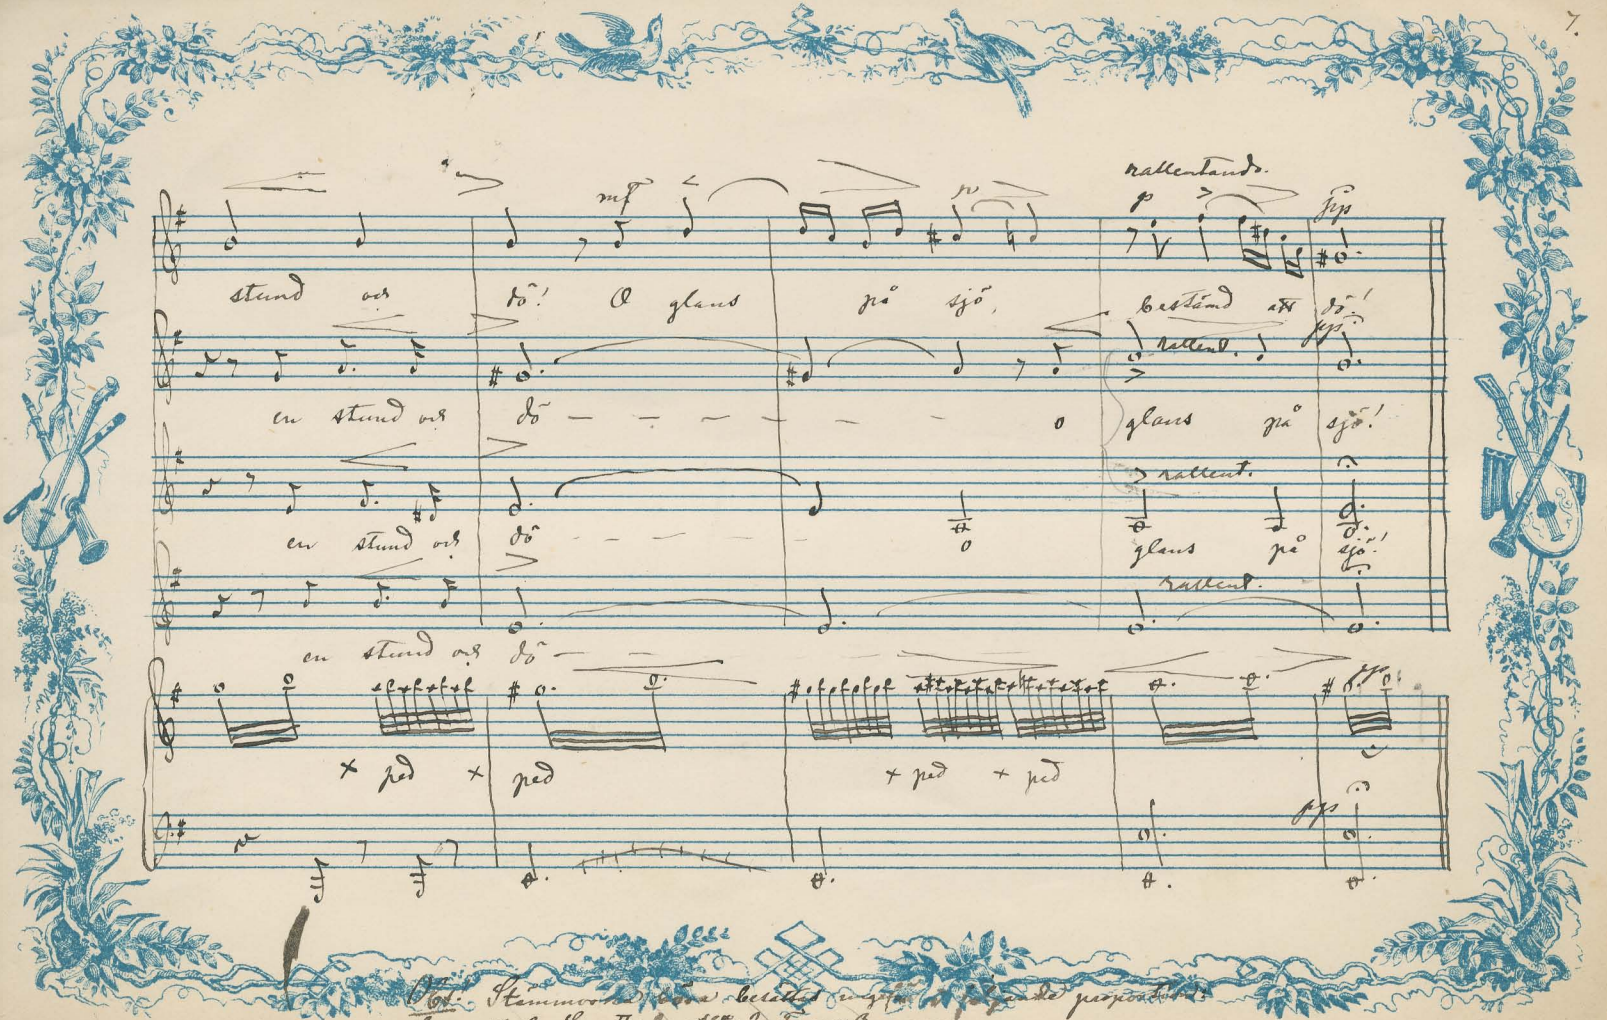 7.
rallentando.
mf p p > pp
stund och dö! O glans på sjö, bestämd att dö!
rallent. pp
en stund och dö – – – – – – o glans på sjö!
rallent.
en stund och dö – – – – – o glans på sjö!
rallent.
en stund och dö – –
pp
× ped × ped × ped × ped
pp
Obs! Stämmorna böra besättas ungefär i följande proportion: